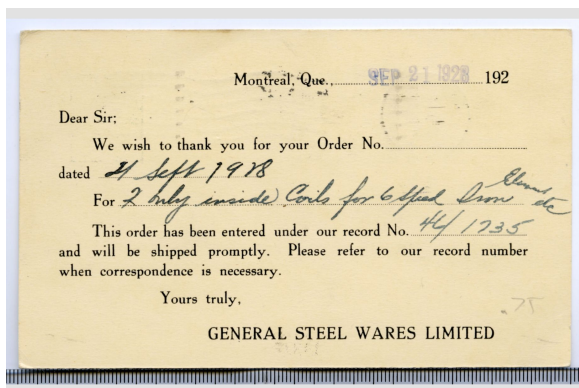 Montreal, Que., SEP 21 1928 192
Dear Sir;
We wish to thank you for your Order No.
dated 21 Sept 1928
For 2 only inside Coils for 6 Iron etc
This order has been entered under our record No. 44/1735
and will be shipped promptly. Please refer to our record number
when correspondence is necessary.
Yours truly,
GENERAL STEEL WARES LIMITED